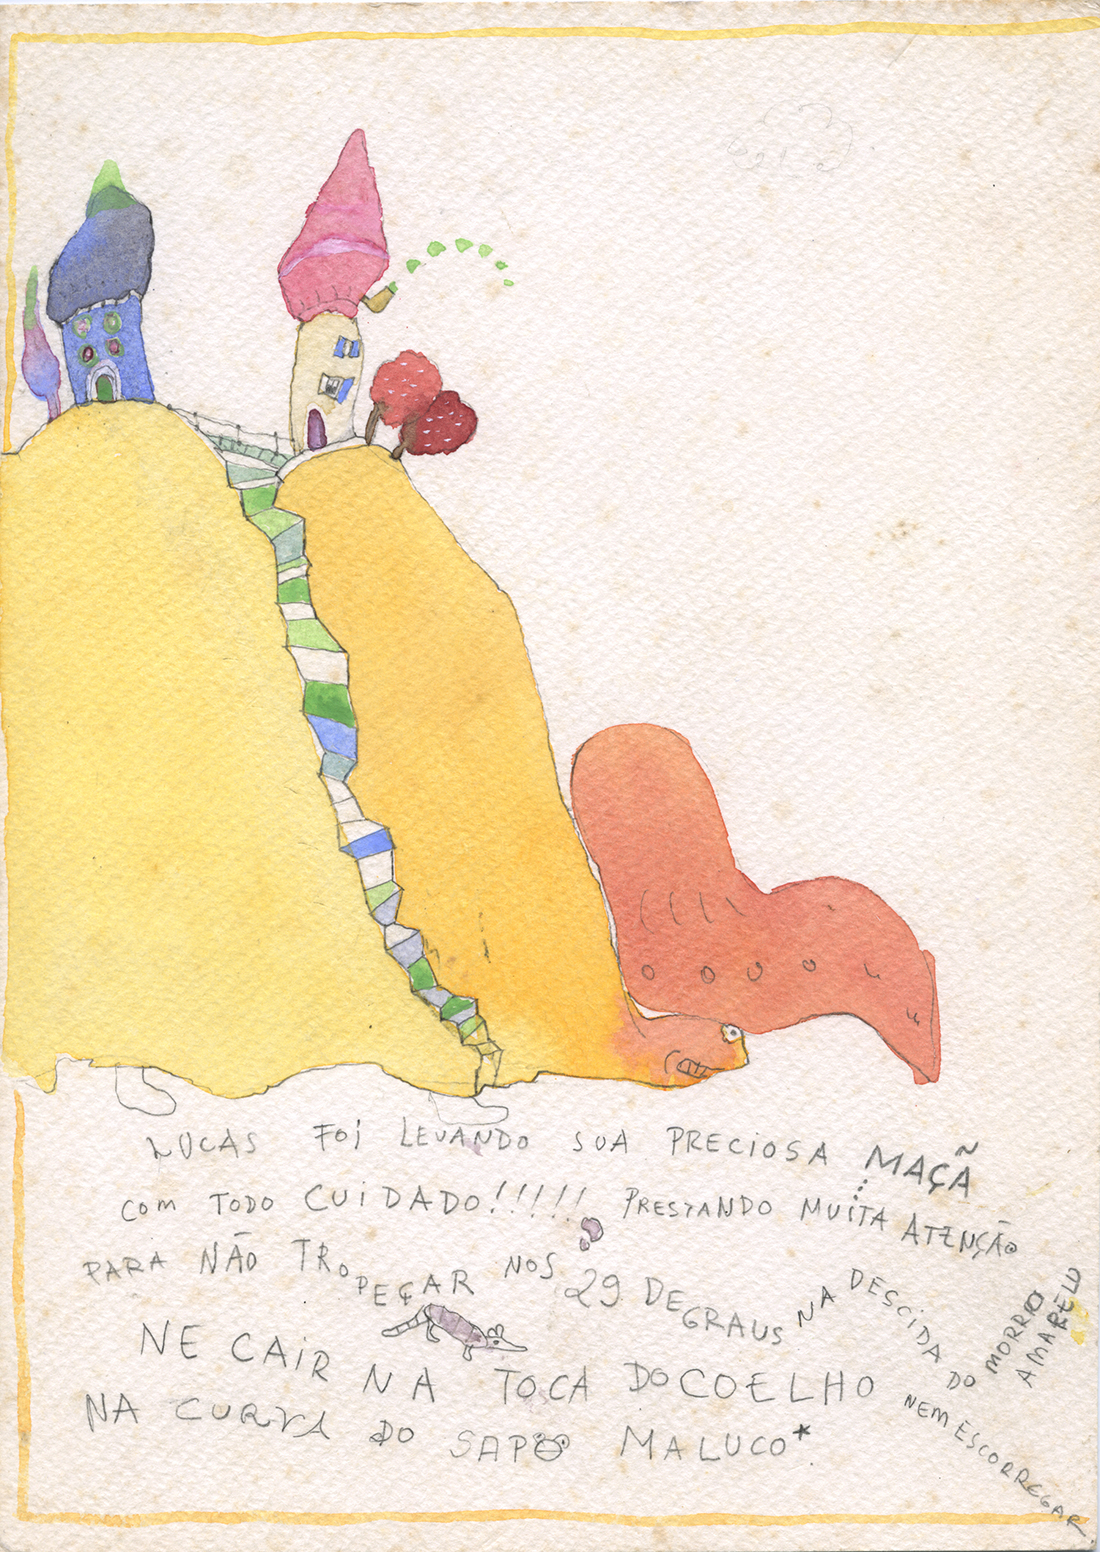 LUCAS FOi LEVANDO SUA PRECiOSA MAÇÃ
COM TODO CUiDADO!!!!!! PRESTANDO MUiTA ATENÇÃO
PARA NÃO TROPEÇAR NOS 29 DEGRAUS NA DESCiDA DO MORRO AMARELO
NE CAiR NA TOCA DO COELHO NEM ESCORREGAR
NA CURVA DO SAPO MALUCO*